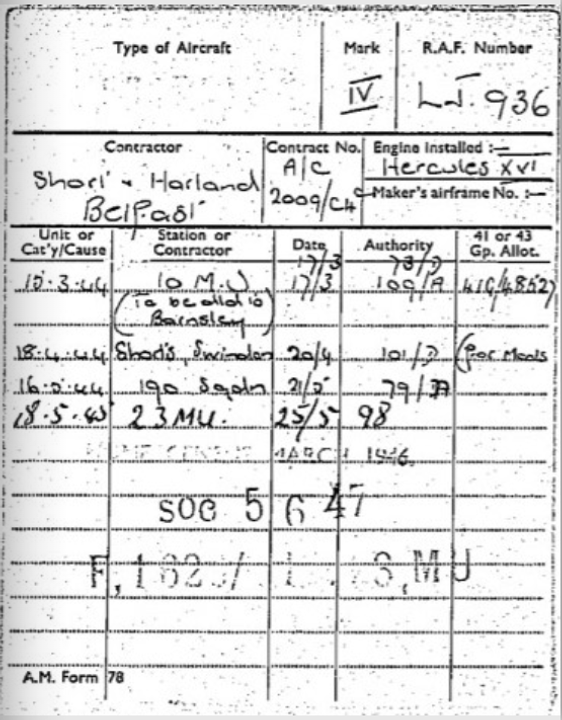 Type of Aircraft Mark R.A.F. Number
IV LJ. 936
Contractor Contract No. Engine installed :—
Short & Harland A/C Hercules XVI
Belfast 2009/C4C Maker's airframe No. :—
Unit or Station or Date Authority 41 or 43
Cat'y/Cause Contractor Gp. Allot.
17/3
15.3.44 10 M.U 17/3 41G/4852
(To be allotd to
Barnsley)
18.4.44 Short's, Swindon 20/4 101/ (for Mods
190 Sqdn 79/
18.5.45 23 MU. 25/5 98
CENSUS MARCH 1946
SOC 5 6 47
S,MU
A.M. Form 78